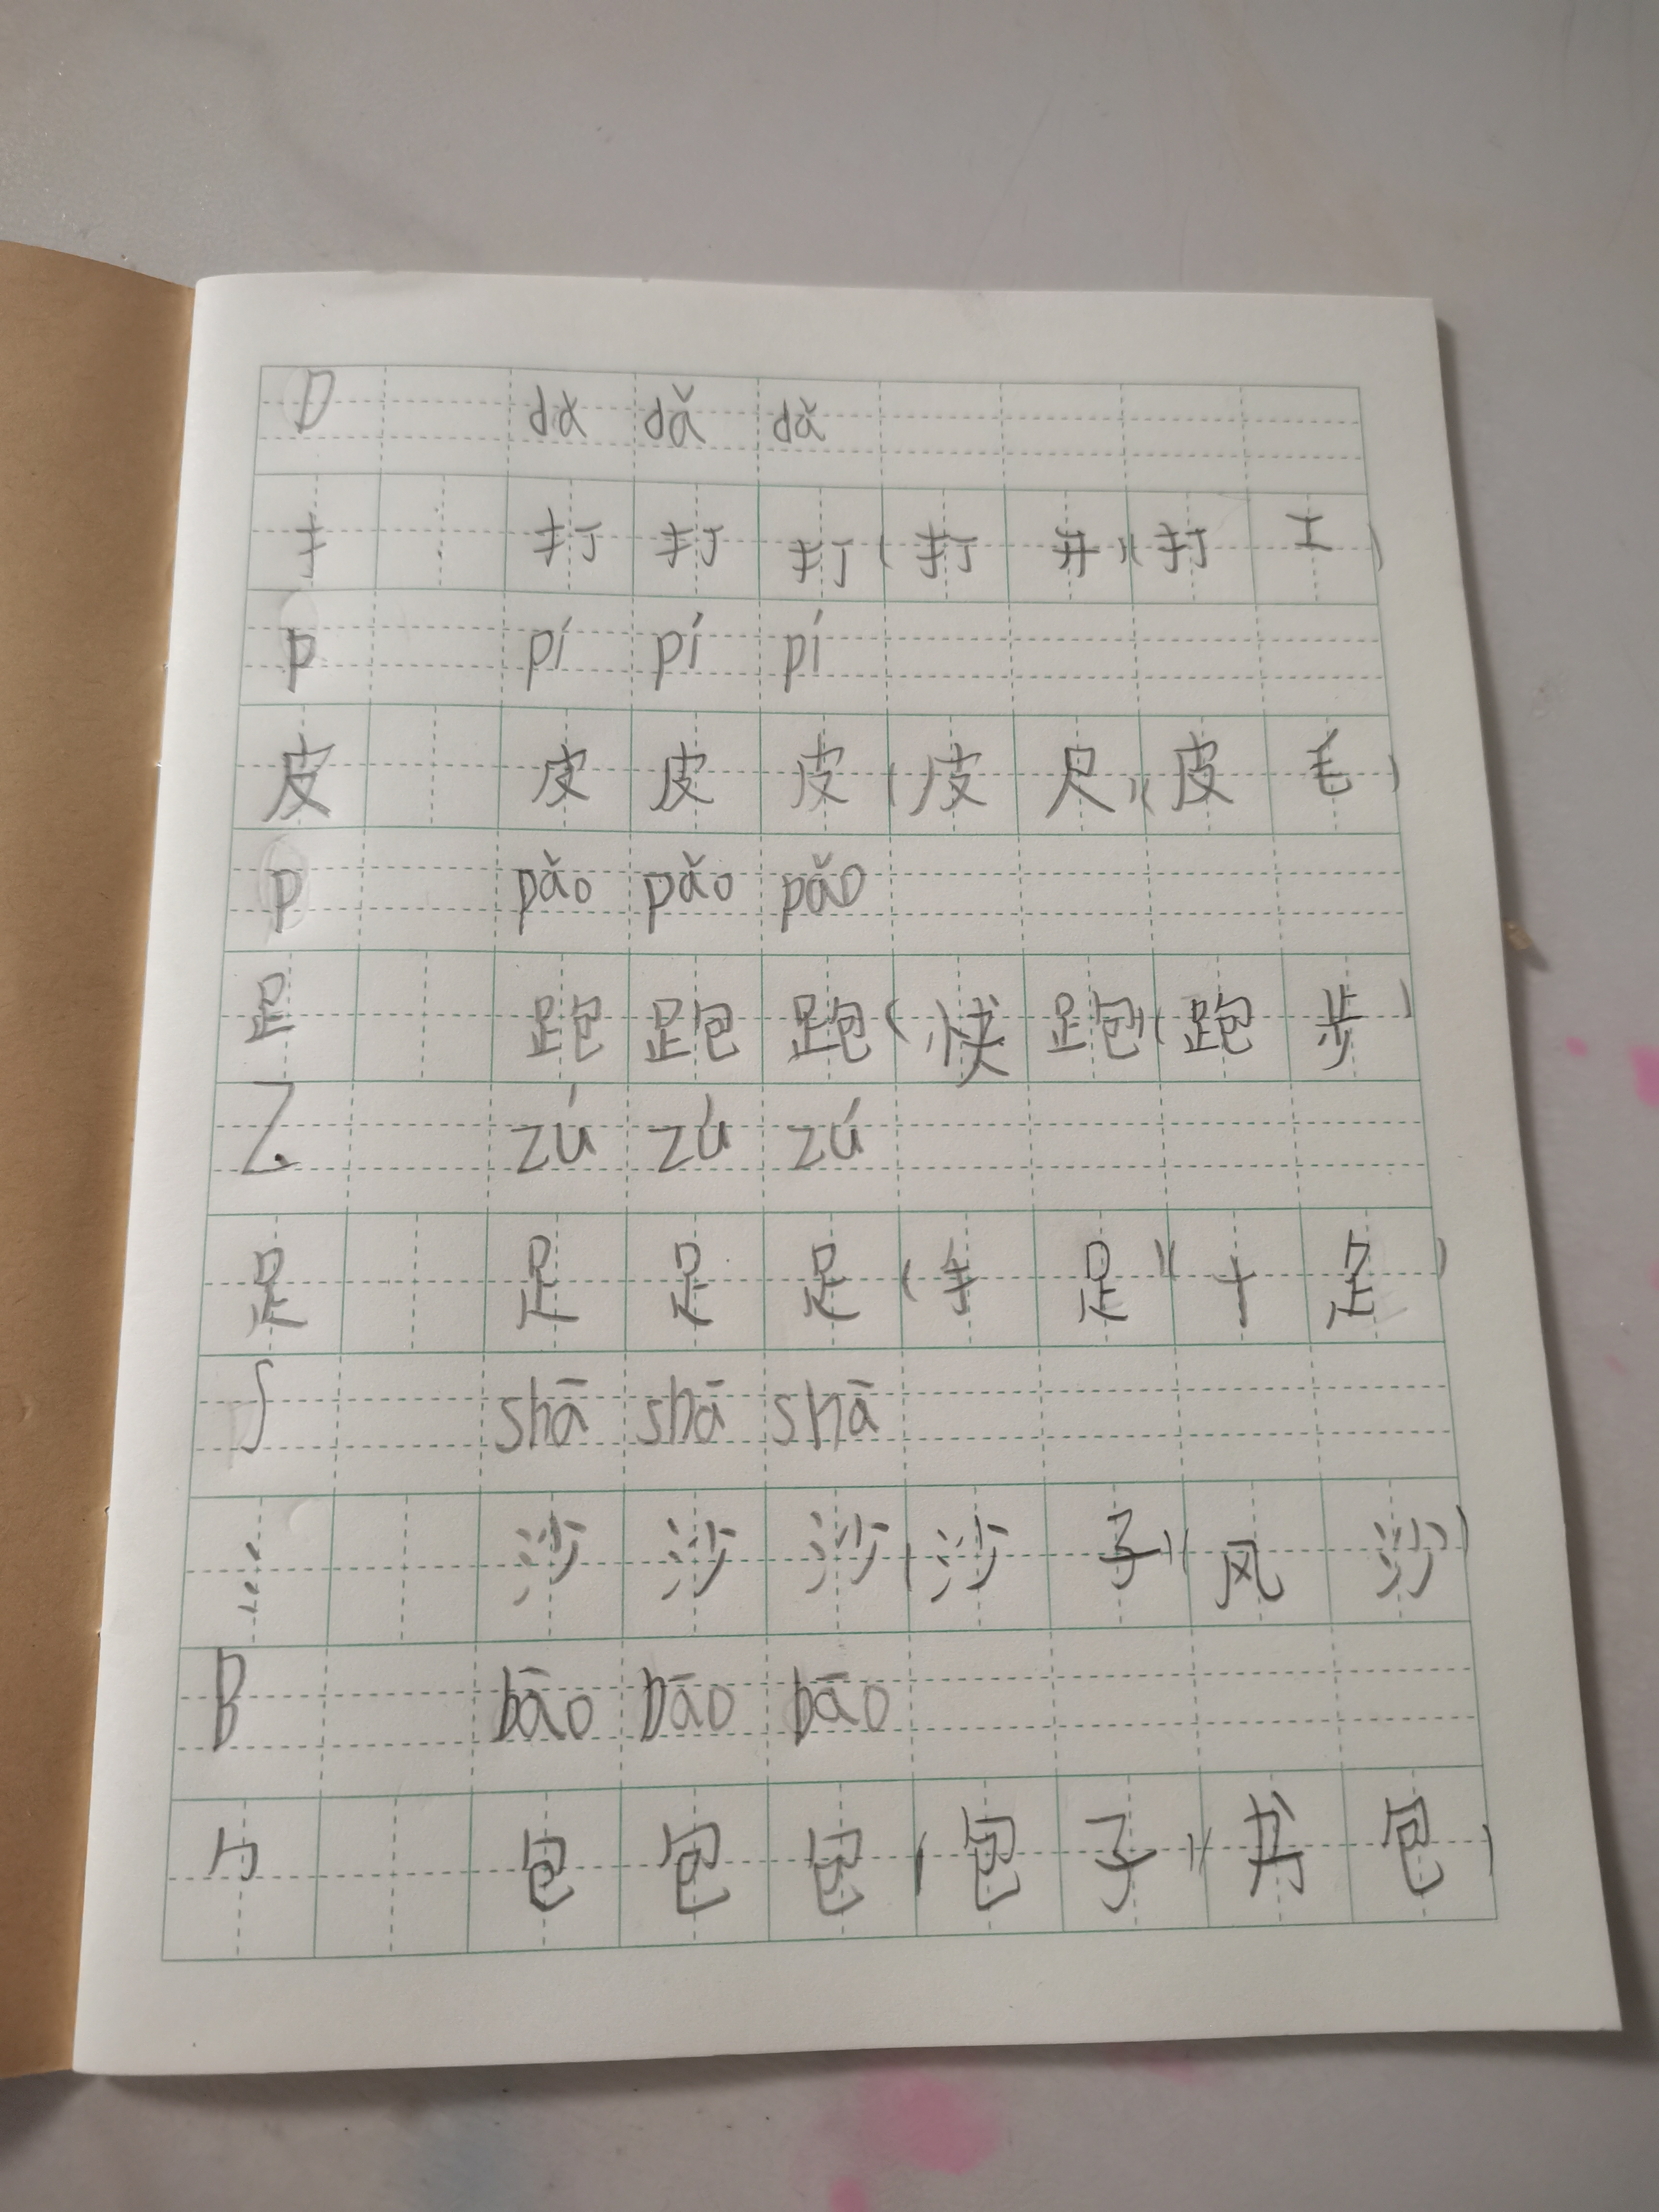 D dǎ dǎ dǎ
扌 打 打 打 (打 开)(打 工)
p pí pí pí
皮 皮 皮 皮 (皮 尺)(皮 毛)
p pǎo pǎo pǎo
𧾷 跑 跑 跑 (快 跑)(跑 步)
Z zú zú zú
足 足 足 足 (手 足)(十 足)
S shā shā shā
氵 沙 沙 沙 (沙 子)(风 沙)
B bāo bāo bāo
勹 包 包 包 (包 子)(书 包)